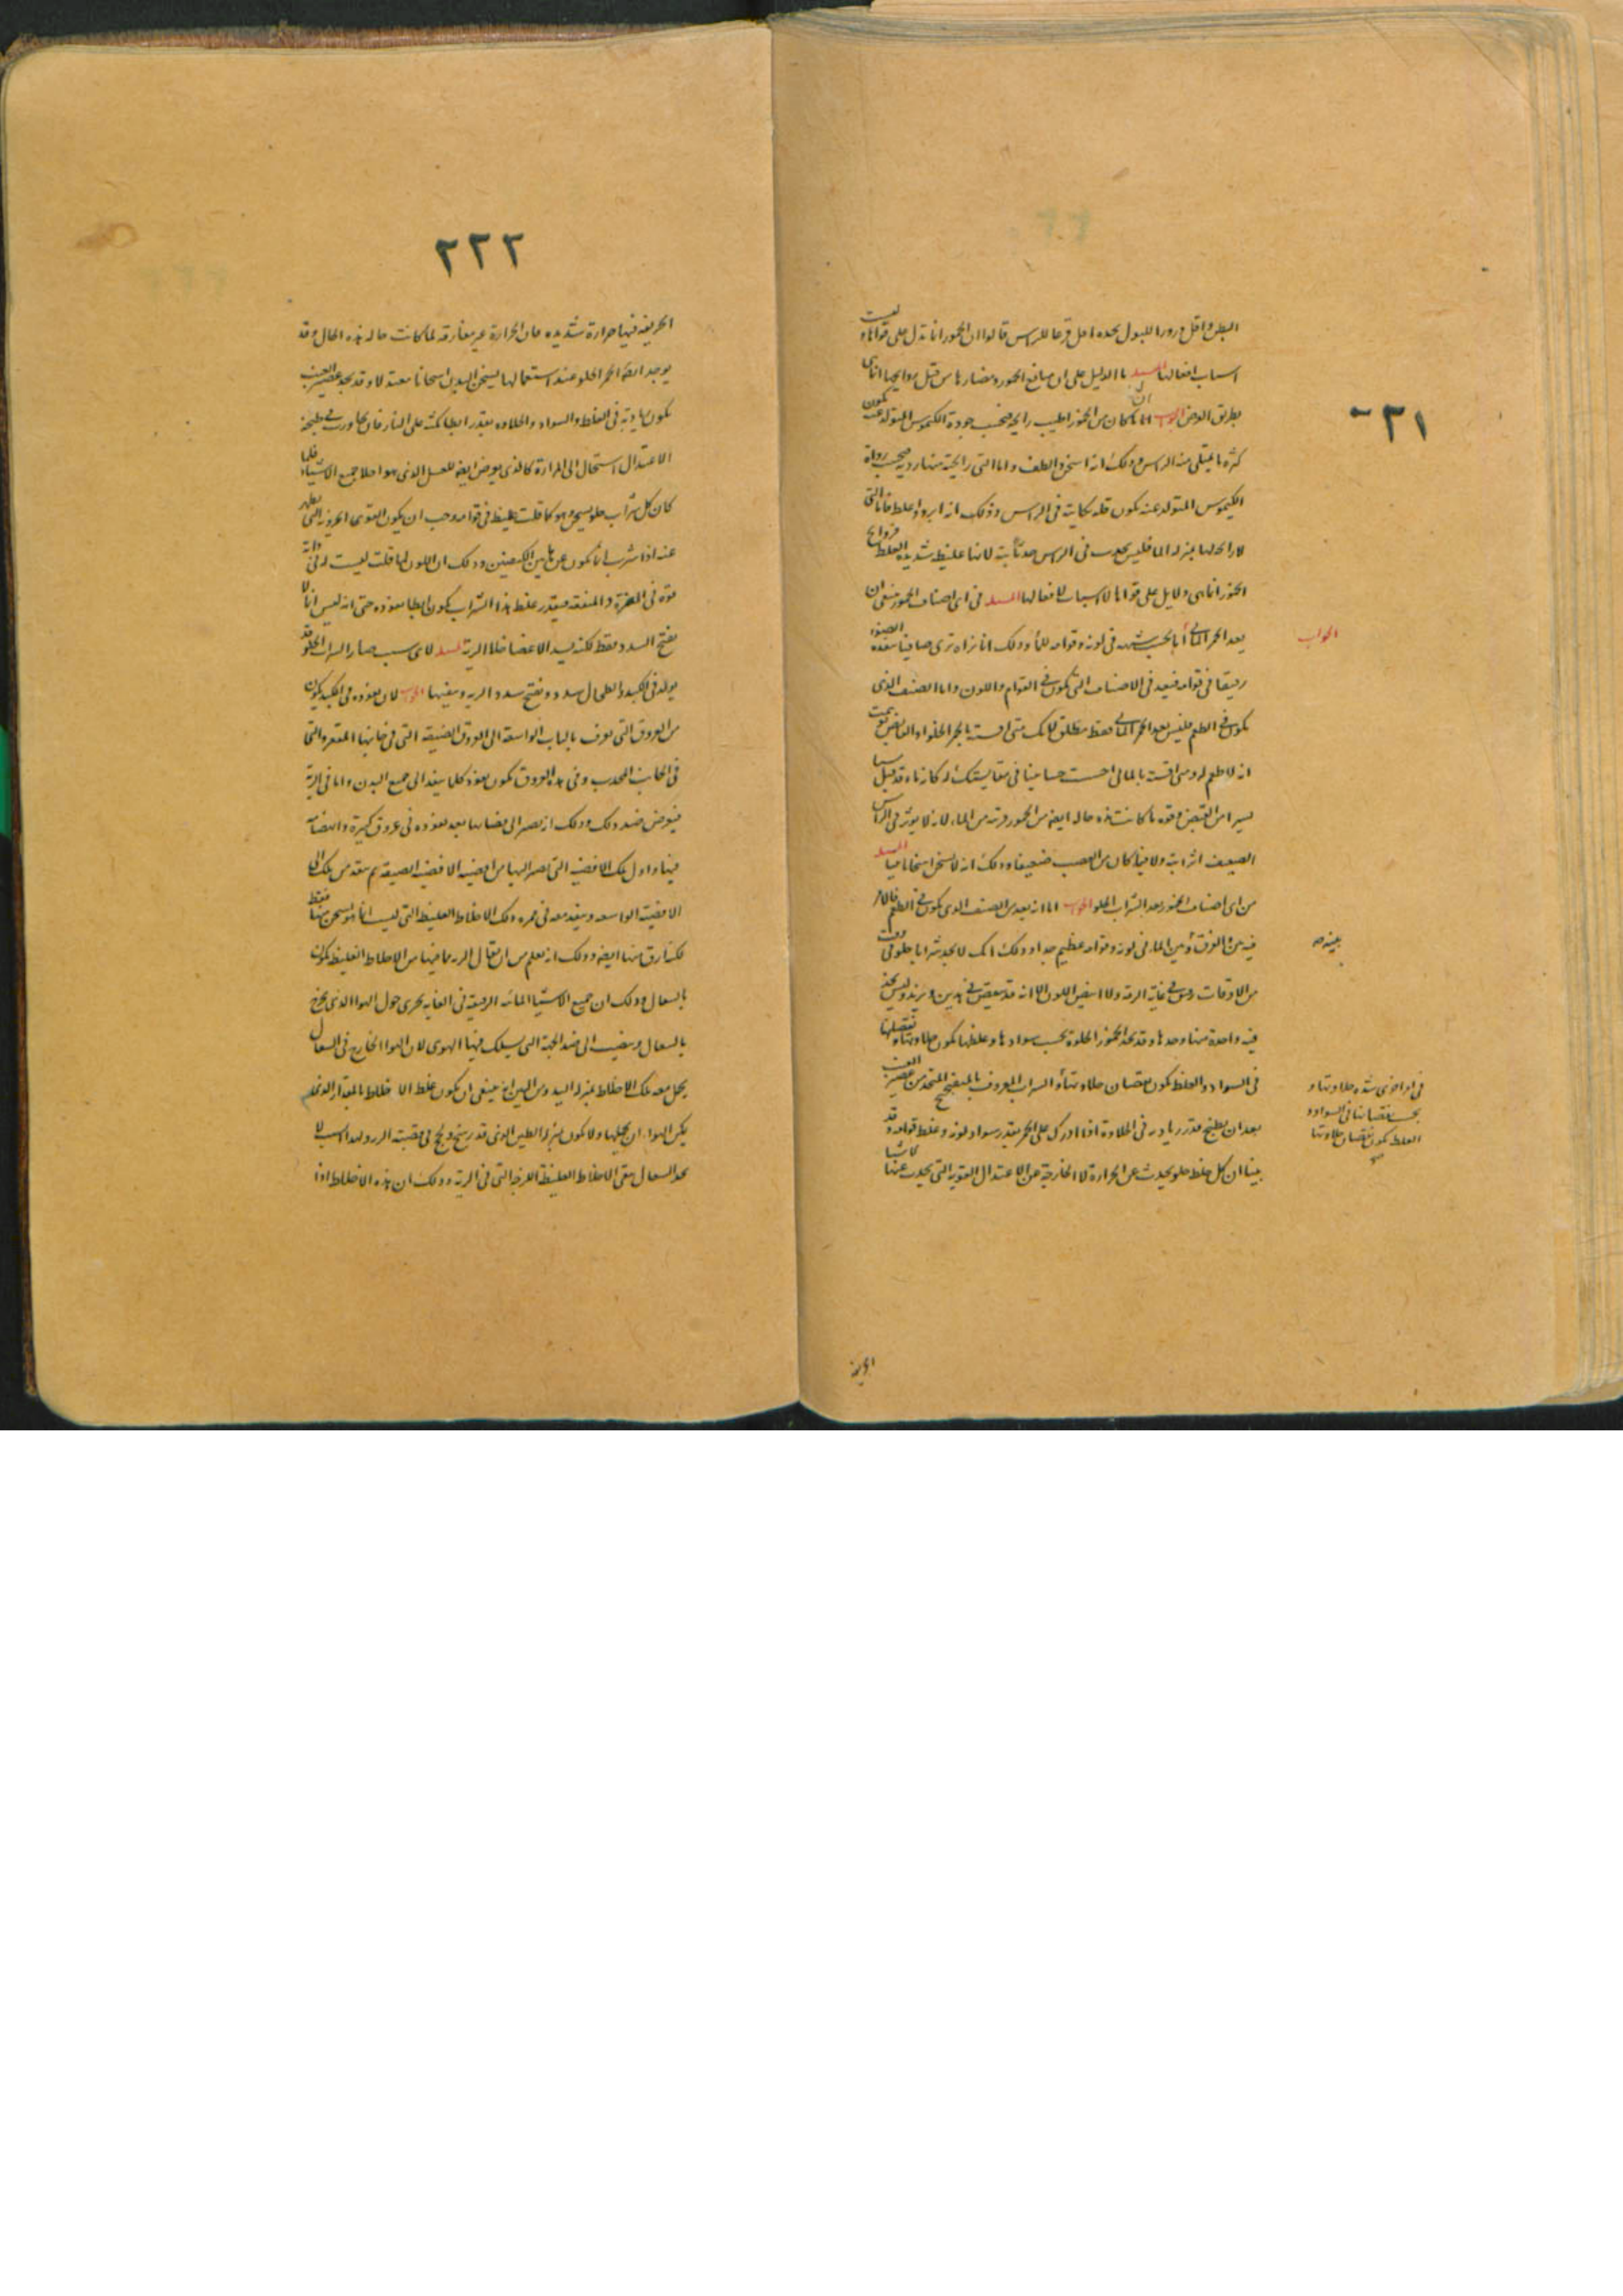 البطن واقل درورا للبول بحده اقل قرعا للراس قالوا ان الخمور انما تدل على قواها وليست
اسباب افعالها المسيله ما الدليل على ان منافع الخمور ومضارها من قبل روايحها انما هى
بطريق العرض الجواب ان ما كان من الخمور اطيب رايحة فبحسب جودة الكيموس المتولد عنه يكون
كثرة ما يمتلى منه الراس وذلك انه اسخن والطف واما التى رايحتها رديه فبحسب رداة
الكيموس المتولد عنه يكون قلة نكايته فى الراس وذلك انه ابرد واغلظ فاما التى
لا رايحه لها بمنزلة الما فليس يحدث فى الراس حدثا بتة لانها غليظة شديدة الغلظ فروايح
الخمور انما هى دلايل على قواها لا اسباب لافعالها المسيله فى اى اصناف الخمور ينبغى ان
يعد الخمر المائى الجواب
رقيقا فى قوامه فيعد فى الاصناف التى تكون فى القوام واللون واما الصنف الذى
يكون فى الطعم فليس يعد الخمر المائى فقط مطلق لانك متى قسته بالخمر الحلو او القابض توهمت
انه لا طعم له ومتى قسته بالما احسست حسا بينا فى مقايستك له كانه ماء قد قبل شيا
يسيرا من القبض وقوه ما كانت هذه حاله ايضا من الخمور قريبة من الماء لانه لا يوثر فى الراس
الضعيف اثرا بتة ولا فيما كان من العصب ضعيفا وذلك انه لا يسخن اسخانا بينا المسيله
من اى اصناف الخمور يعد الشراب الحلو الجواب اما انه يعد من الصنف الذى يكون فى الطعم فالامر
فيه بين الفرق بين الماء فى لونه وقوامه عظيم جدا وذلك انك لا تجد شرابا حلوا فى وقت
من الاوقات وهو فى غاية الرقة ولا ابيض اللون الا انه قد ينقص فى هذين ويزيد وليس تجد
فيه واحدة منها وحدها وقد تجد الخمور الحلوة بحسب سوادها وغلظها يكون حلاوتها وبنقصانها
فى السواد والغلظ يكون نقصان حلاوتها والشراب المعروف بالميفختج المتخذ من عصير العنب
بعد ان يطبخ فقدر زيادته فى الحلاوة اذا ادرك على الخمر بقدر سواد لونه وغلظ قوامه وقد
بينا ان كل خلط حلو يحدث عن الحرارة لا الخارجة عن الاعتدال القوية التى يحدث عنها الاشيا
٣١
الجواب
بعينه صح
بحسب نقصانها فى السواد و
الغلظ يكون نقصان حلاوتها
صح
الحريفة
٢٢٢
الحريفه فيها حرارة شديده فان الحرارة غير مفارقه لما كانت حاله هذه الحال وقد
يوجد ايضا الخمر الحلو عند استعمالها يسخن البدن اسخانا معتدلا وقد نجد عصير العنب
يكون زيادته فى الغلظ والسواد والحلاوه بقدر ابطا مكثه على النار فان تجاوزت فى طبخه
الاعتدال استحال الى المرارة كالذى يعرض ايضا للعسل الذى هو احلا جميع الاشياء فلما
كان كل شراب حلو يسخن وهو كما قلت غليظ فى قوامه وجب ان يكون القوى الجزويه التى تظهر
عنه اذا شرب انما يكون عن هاتين الكيفيتين وذلك ان اللون كما قلت ليست له فى ذاته
قوة فى المضرة والمنفعه فبقدر غلظ هذا الشراب يكون ابطا نفوذه حتى انه ليس انما لا
يفتح السدد فقط لكنه يسد الاعضا خلا الرية المسيله لاى سبب صار الشراب الحلو قد
يولد فى الكبد والطحال سدد ويفتح سدد الريه وينقيها الجواب لان نفوذه فى الكبد يكون
من العروق التى تعرف بالباب الواسعة الى العروق الضيقه التى فى جانبها المقعر والتى
فى الجانب المحدب وفى هذه العروق يكون نفوذ كلما ينفذ الى جميع البدن واما فى الرية
فيعرض ضد ذلك وذلك انه يصير الى فضايها بعد نفوذه فى عروق كبيرة وانضمامه
فيها واول تلك الافضية التى يصير اليها من افضيه الافضية الضيقه ثم ينفذ من تلك الى
الافضية الواسعه وينفذ معه فى ممره ذلك الاخلاط الغليظة التى ليست انما هو يسخن منها فقط
لكنه ارق منها ايضا وذلك انه تعلم من ان انتقال الريه ما فيها من الاخلاط الغليظه يكون
بالسعال وذلك ان جميع الاشيا المائيه الرقيقه فى الغايه يجرى حول الهوا الذى يخرج
بالسعال وينصب الى ضد الجهة التى يسلك فيها الهوى لان الهوا الخارج فى السعال
يحمل معه تلك الاخلاط بمنزلة اليد ومن البين انه ينبغى ان يكون غلظ الاخلاط بالمقدار الذى
يمكن الهواء ان يحملها ولا يكون بمنزلة الطين الذى قد رسخ ولحج فى قصبة الريه ولهذا السبب لا
يجد السعال ينقى الاخلاط الغليظة اللزجه التى فى الرية وذلك ان هذه الاخلاط اذا